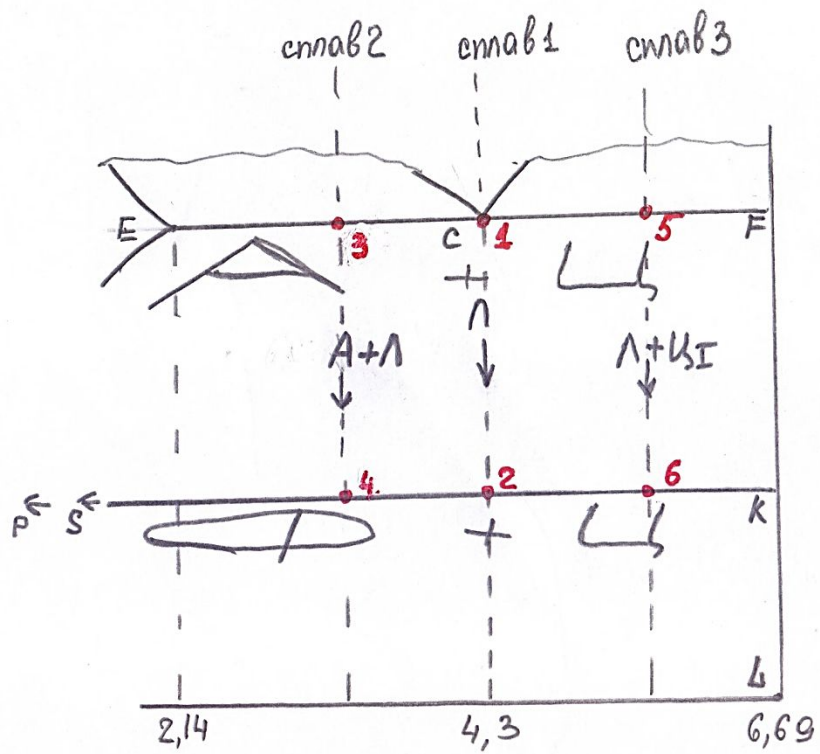 сплав2 сплав1 сплав3
E 3 C 1 5 F
Л
А+Л Л+ЦI
P S 4. 2 6 K
L
2,14 4,3 6,69